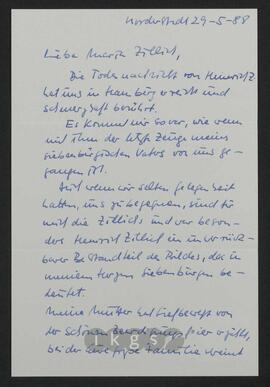 Norderstedt 29-5-88
Liebe Maria Zillich,
Die Todesnachricht von Heinrich Z.
hat uns in Hamburg erreicht und
schmerzhaft berührt.
Es kommt mir so vor, wie wenn
mit Ihm der letzte Zeuge meines
siebenbürgischen Vaters von uns ge-
gangen ist.
Auch wenn wir selten Gelegenheit
hatten, uns zu begegnen, sind für
mich die Zillichs und vor beson-
ders Heinrich Zillich ein unverrück-
barer Bestandteil des Bildes, das in
meinem Herzen Siebenbürgen be-
deutet.
Meine Mutter hat tiefbewegt von
der schönen Beerdigungsfeier erzählt,
bei der eine große Familie vereint
ikgs